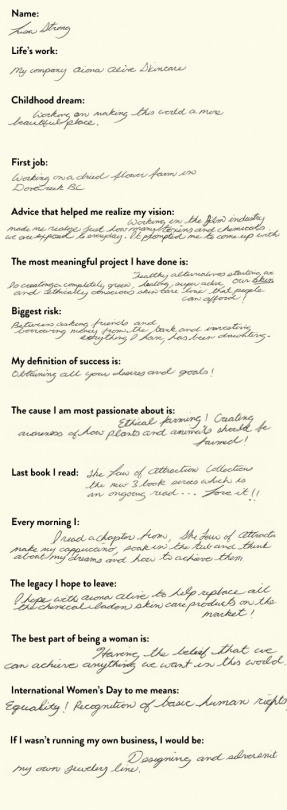 Name:
Lisa Strong
Life's work:
My company Aiona Alive Skincare
Childhood dream:
Working on making this world a more
beautiful place.
First job:
Working on a dried flower farm in
Dove Creek BC
Advice that helped me realize my vision:
Working in the film industry
made me realize just how many toxins and chemicals
we are exposed to everyday. It prompted me to come up with
The most meaningful project I have done is:
healthy alternatives starting on
Is creating a completely green, healing, super active
and ethically conscious skin care line that people
can afford!
Biggest risk:
Between asking friends and
borrowing money from the bank and investing
everything I have, has been daunting.
My definition of success is:
Obtaining all your desires and goals!
The cause I am most passionate about is:
Ethical farming! Creating
awareness of how plants and animals should be
farmed!
Last book I read: The Law of Attraction Collection
the new 3 book series which is
an ongoing read... Love it!!
Every morning I:
I read a chapter from, The Law of Attracti
make my cappuccino, soak in the tub and think
about my dreams and how to achieve them.
The legacy I hope to leave:
I hope with Aiona Alive to help replace all
the chemical laden skin care products on the
market!
The best part of being a woman is:
Having the belief that we
can achieve anything we want in this world.
International Women's Day to me means:
Equality! Recognition of basic human rights
If I wasn't running my own business, I would be:
Designing and
my own jewelry line.